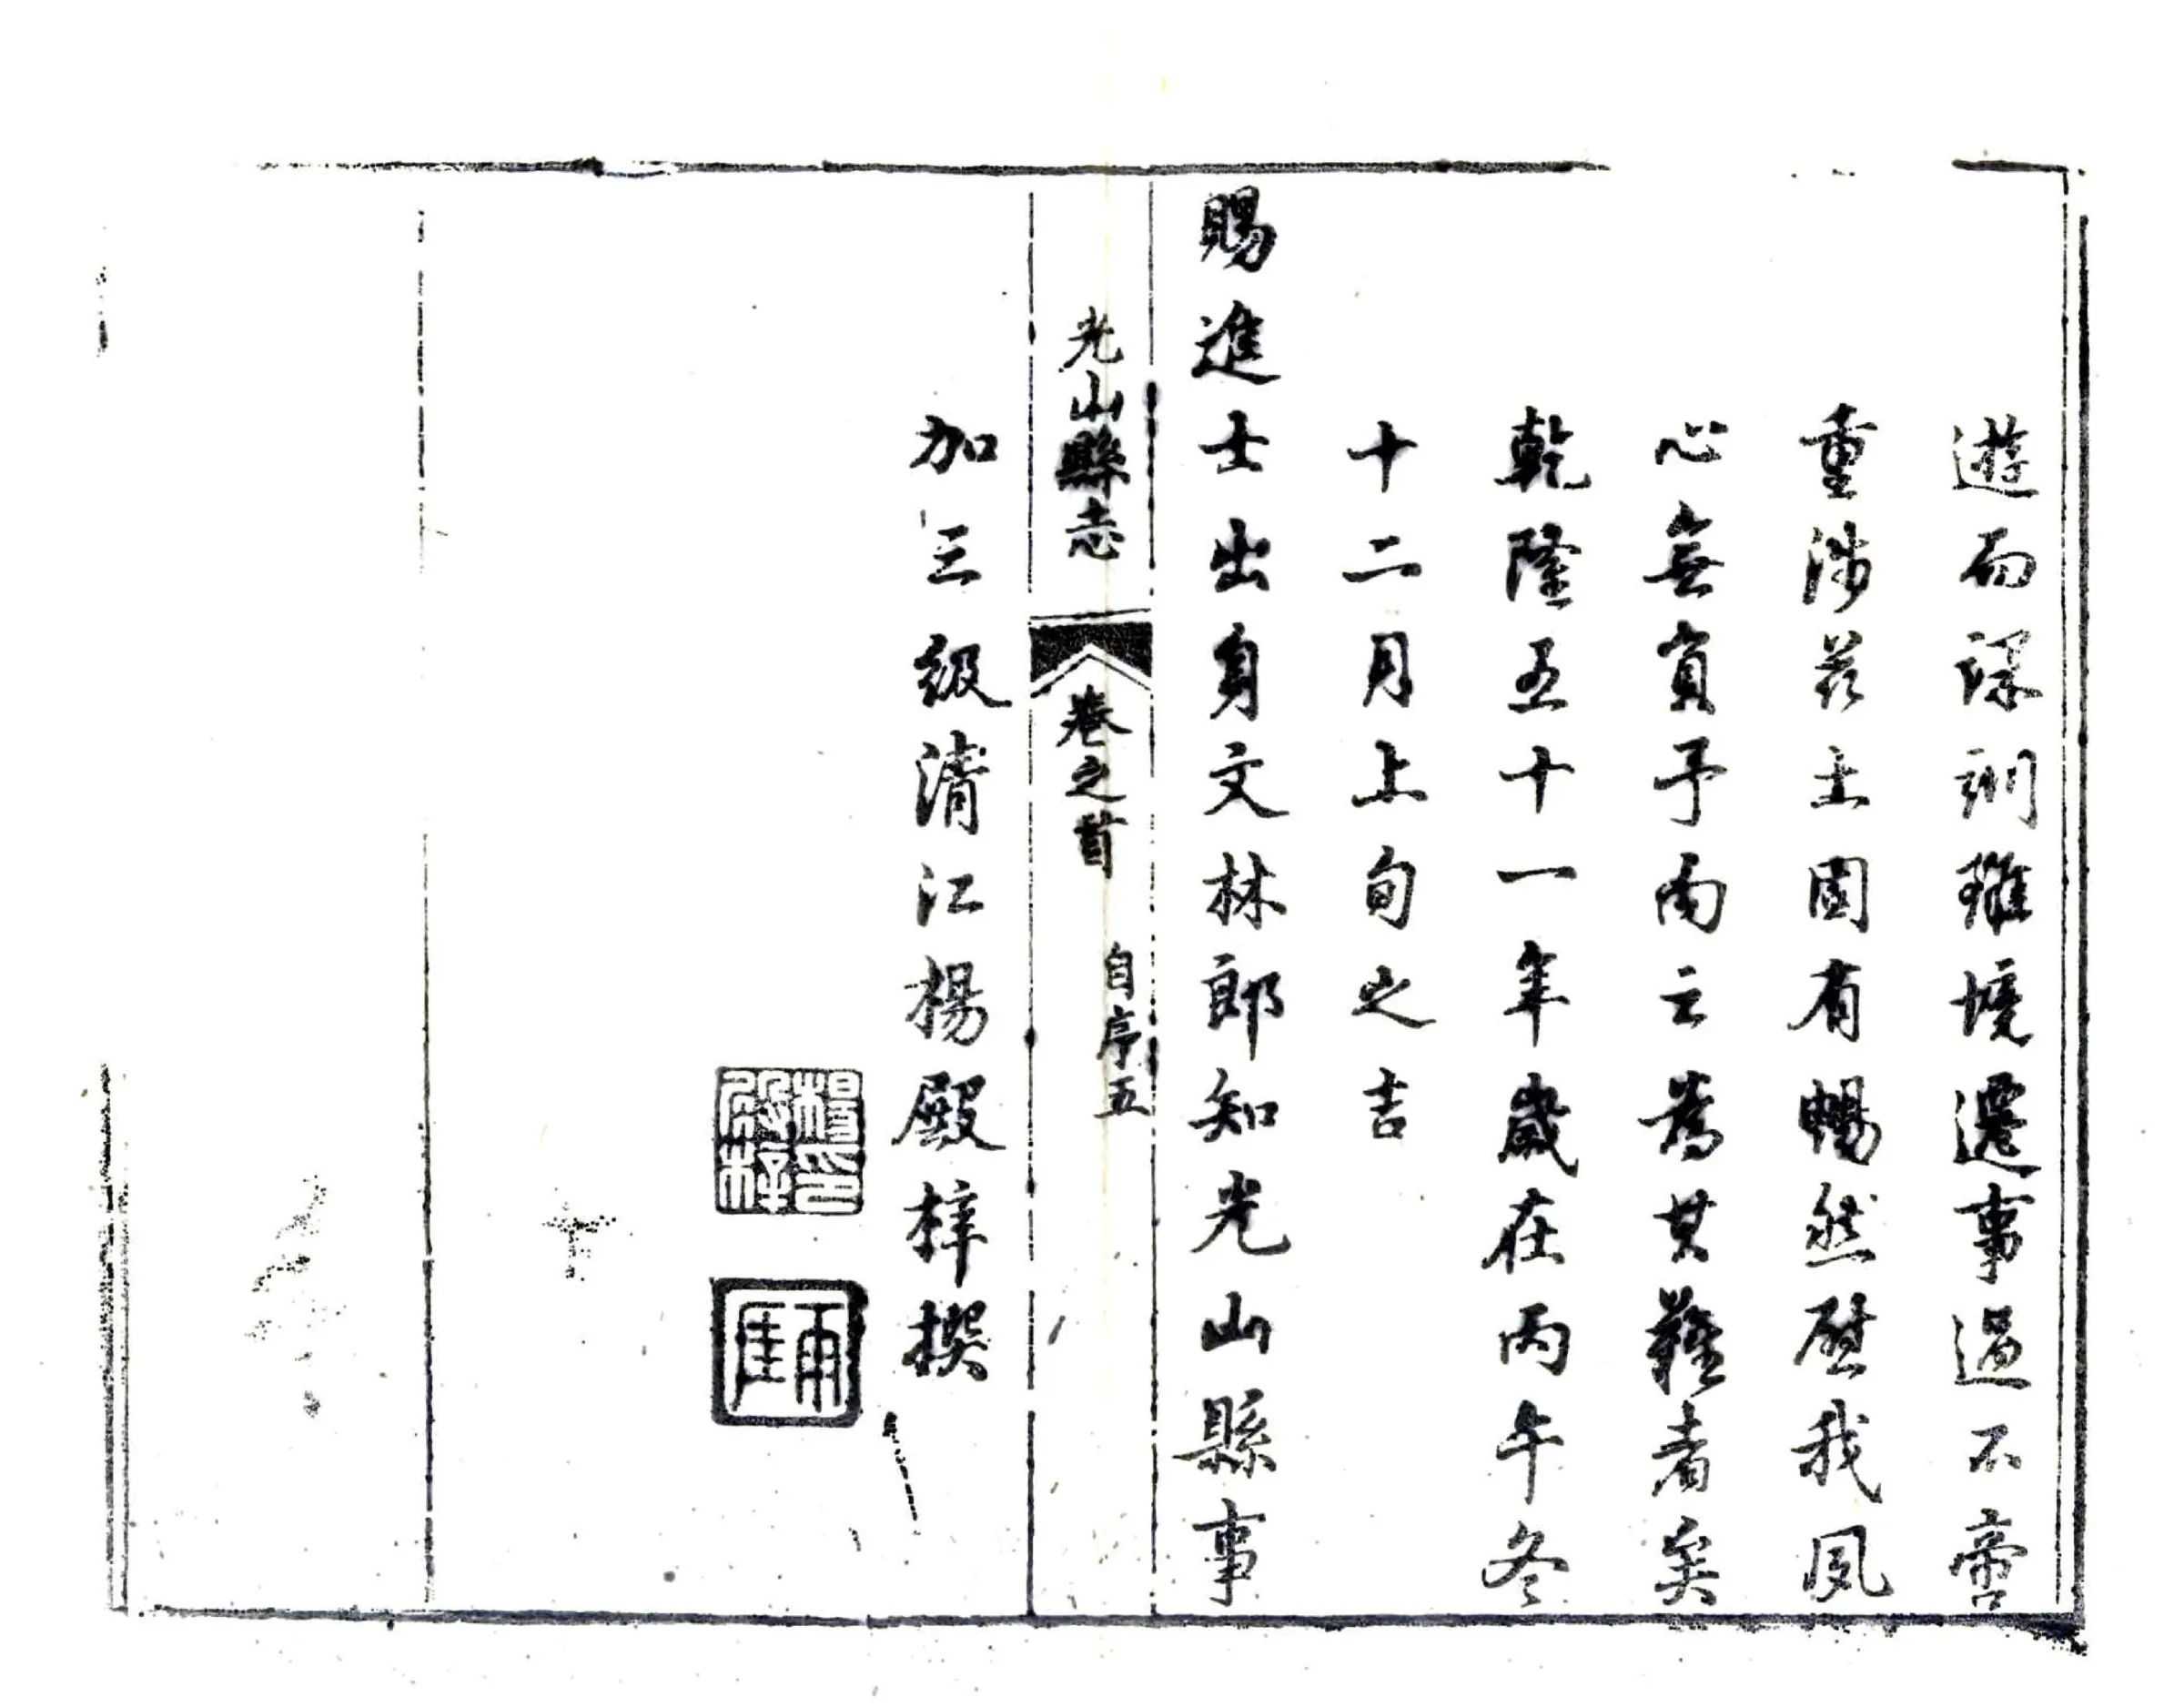 遊而深訓雖境遷事過不啻
重涉茲土固有暢然慰我夙
心無負予而云為其難者矣
乾隆五十一年歲在丙午冬
十二月上旬之吉
賜進士出身文林郎知光山縣事
光山縣志 卷之首 自序 五
加三級清江楊殿梓撰
楊印殿梓